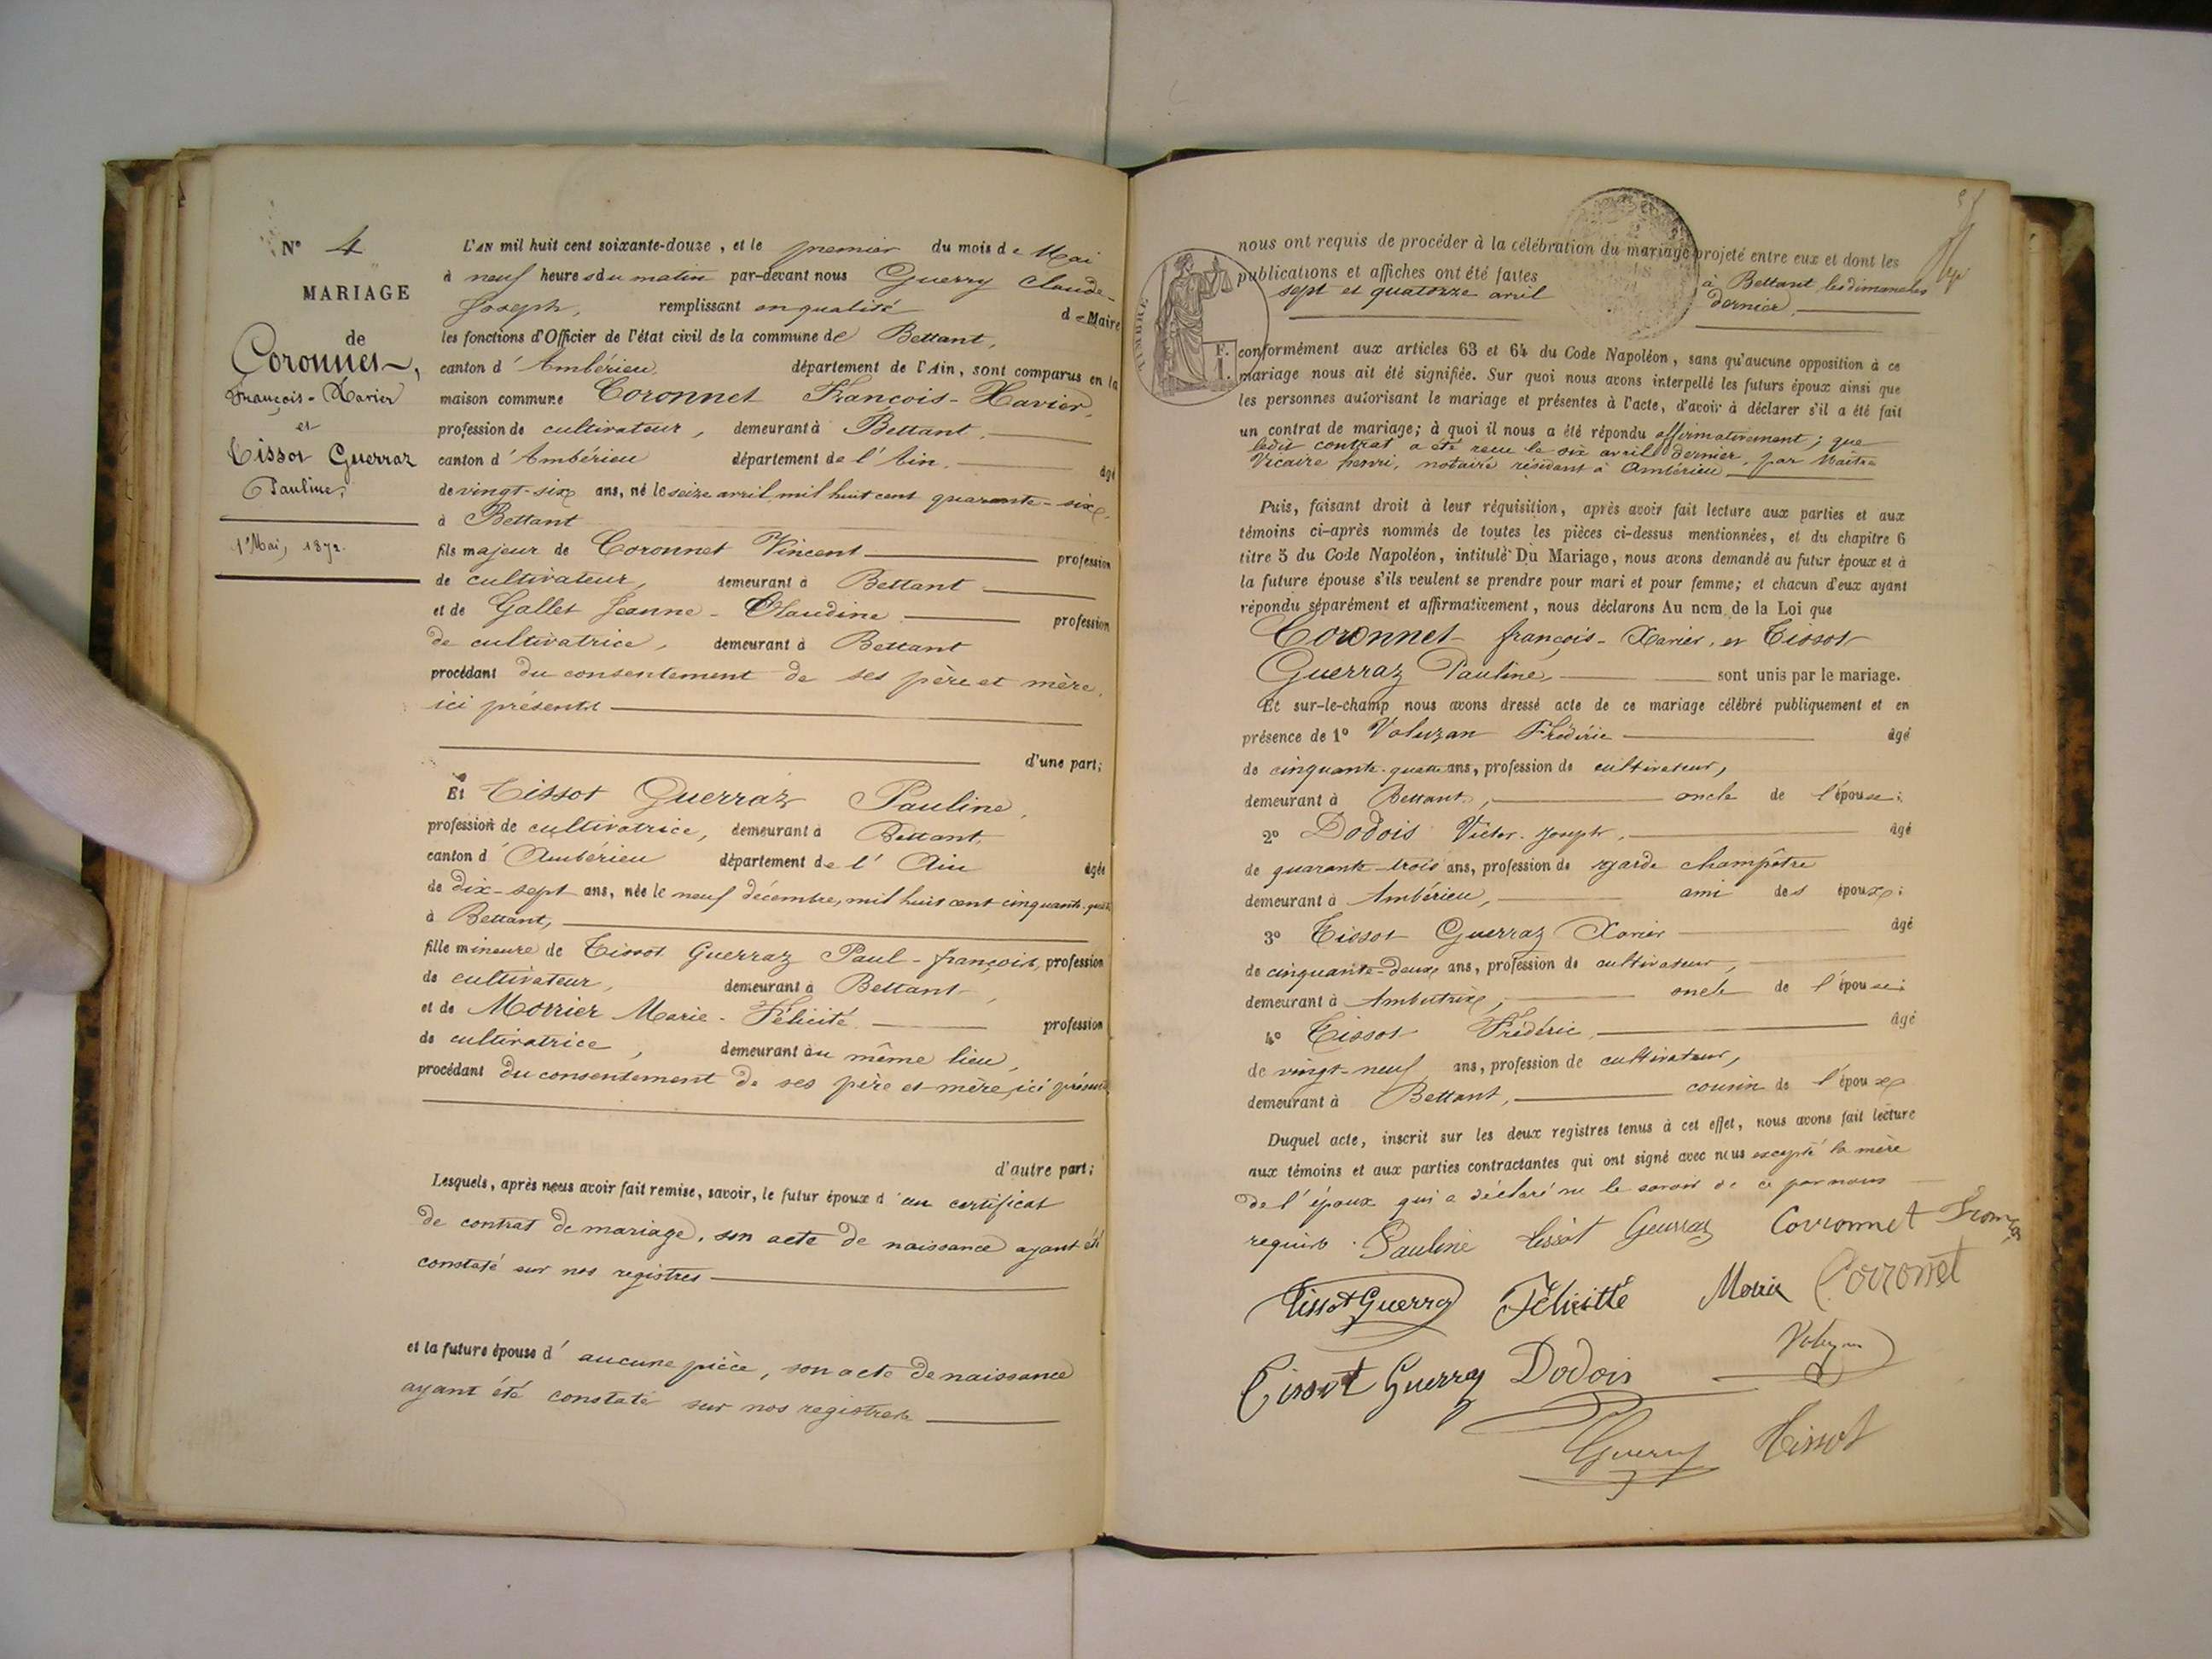 N° 4
MARIAGE
de
Coronnet,
François-Xavier
et
Tissot Guerraz
Pauline,
1er Mai, 1872.
L'AN mil huit cent soixante-douze, et le premier du mois de Mai
à neuf heures du matin par-devant nous Guerry Claude-
Joseph, remplissant en qualité de Maire
les fonctions d'Officier de l'état civil de la commune de Bettant,
canton d'Ambérieu, département de l'Ain, sont comparus en la
maison commune Coronnet François-Xavier,
profession de cultivateur, demeurant à Bettant,
canton d'Ambérieu département de l'Ain, âgé
de vingt-six ans, né le seize avril mil huit cent quarante-six,
à Bettant
fils majeur de Coronnet Vincent profession
de cultivateur, demeurant à Bettant
et de Gallet Jeanne-Claudine profession
de cultivatrice, demeurant à Bettant
procédant du consentement de ses père et mère,
ici présents
d'une part;
Et Tissot Guerraz Pauline,
profession de cultivatrice, demeurant à Bettant,
canton d'Ambérieu département de l'Ain âgée
de dix-sept ans, née le neuf décembre, mil huit cent cinquante-quatre
à Bettant,
fille mineure de Tissot Guerraz Paul-françois, profession
de cultivateur, demeurant à Bettant,
et de Morrier Marie-Félicité profession
de cultivatrice, demeurant au même lieu,
procédant du consentement de ses père et mère, ici présents
d'autre part;
Lesquels, après nous avoir fait remise, savoir, le futur époux d'un certificat
de contrat de mariage, son acte de naissance ayant été
constaté sur nos registres
et la future épouse d'aucune pièce, son acte de naissance
ayant été constaté sur nos registres
TIMBRE
F.
1.
nous ont requis de procéder à la célébration du mariage projeté entre eux et dont les
publications et affiches ont été faites à Bettant les dimanches
sept et quatorze avril dernier,
conformément aux articles 63 et 64 du Code Napoléon, sans qu'aucune opposition à ce
mariage nous ait été signifiée. Sur quoi nous avons interpellé les futurs époux ainsi que
les personnes autorisant le mariage et présentes à l'acte, d'avoir à déclarer s'il a été fait
un contrat de mariage; à quoi il nous a été répondu affirmativement; que
ledit contrat a été reçu le six avril dernier, par Maître
Vicaire henri, notaire résidant à Ambérieu,
Puis, faisant droit à leur réquisition, après avoir fait lecture aux parties et aux
témoins ci-après nommés de toutes les pièces ci-dessus mentionnées, et du chapitre 6
titre 5 du Code Napoléon, intitulé Du Mariage, nous avons demandé au futur époux et à
la future épouse s'ils veulent se prendre pour mari et pour femme; et chacun d'eux ayant
répondu séparément et affirmativement, nous déclarons Au nom de la Loi que
Coronnet françois-Xavier, et Tissot
Guerraz Pauline, sont unis par le mariage.
Et sur-le-champ nous avons dressé acte de ce mariage célébré publiquement et en
présence de 1° Voluzan Frédéric âgé
de cinquante-quatre ans, profession de cultivateur,
demeurant à Bettant, oncle de l'épouse;
2° Dodois Victor-Joseph, âgé
de quarante-trois ans, profession de garde champêtre
demeurant à Ambérieu, ami des époux;
3° Tissot Guerraz Xavier âgé
de cinquante-deux ans, profession de cultivateur,
demeurant à Ambutrix, oncle de l'épouse;
4° Tissot Frédéric, âgé
de vingt-neuf ans, profession de cultivateur,
demeurant à Bettant, cousin de l'époux
Duquel acte, inscrit sur les deux registres tenus à cet effet, nous avons fait lecture
aux témoins et aux parties contractantes qui ont signé avec nous excepté la mère
de l'époux qui a déclaré ne le savoir de ce par nous
requis. Pauline tissot Guerraz Corronnet
Tissot Guerraz Félicitté Corronet
Tissot Guerraz Dodois Voluzan
Guerry Tissot